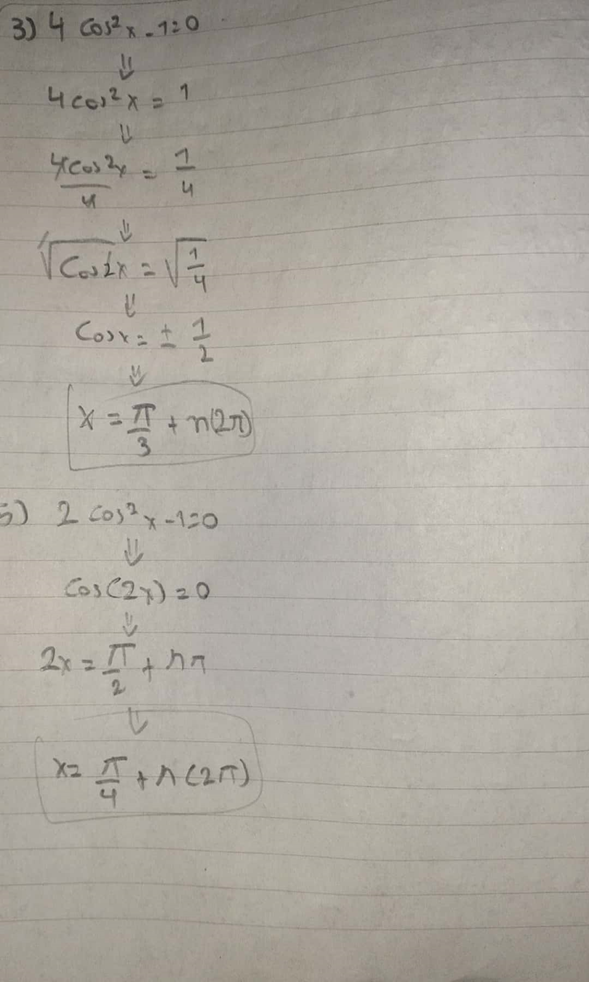 3) 4 cos²x - 1=0
⇓
4cos²x = 1
⇓
4cos²x/4 = 1/4
⇓
√cos²x = √1/4
⇓
Cosx = ± 1/2
⇓
x = π/3 + n(2π)
5) 2 cos²x - 1=0
⇓
Cos(2x) = 0
⇓
2x = π/2 + nπ
⇓
x= π/4 + n(2π)